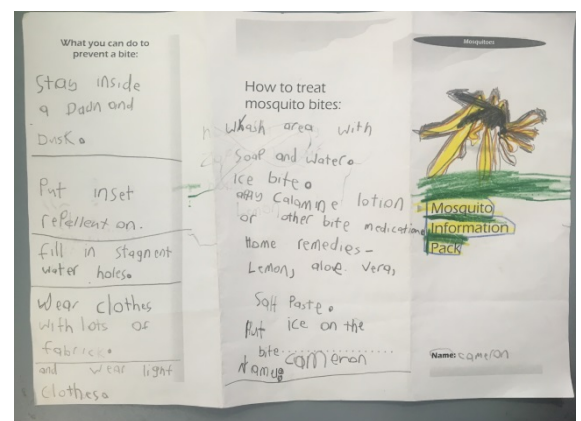 What you can do to
prevent a bite:
Stay inside
a Dadn and
Dusk.
Put inset
repellent on.
fill in stagnent
water holes.
Wear clothes
with lots of
fabrice.
and wear light
clothes.
How to treat
mosquito bites:
Whash area with
Soap and water.
ice bite.
Calamine lotion
or other bite medications
Home remedies-
Lemon, aloe vera,
Salt Paste.
Put ice on the
bite.
Name: cameron
Mosquitoes
Mosquito
Information
Pack
Name: cameron